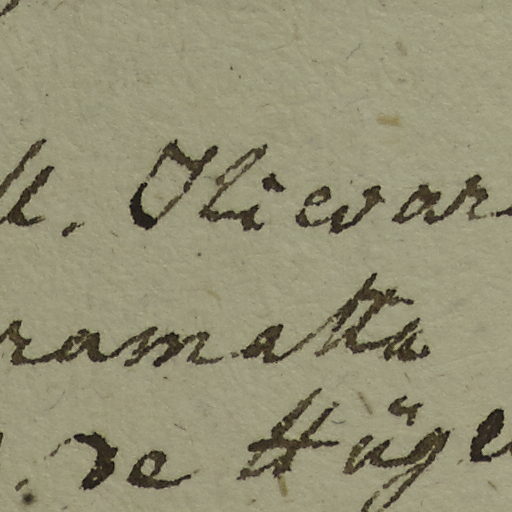 M. Olievar
ramatta
. de Hüge